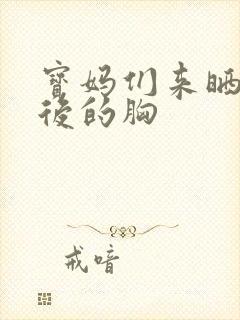 寳妈们来晒
後的胸
戒喑